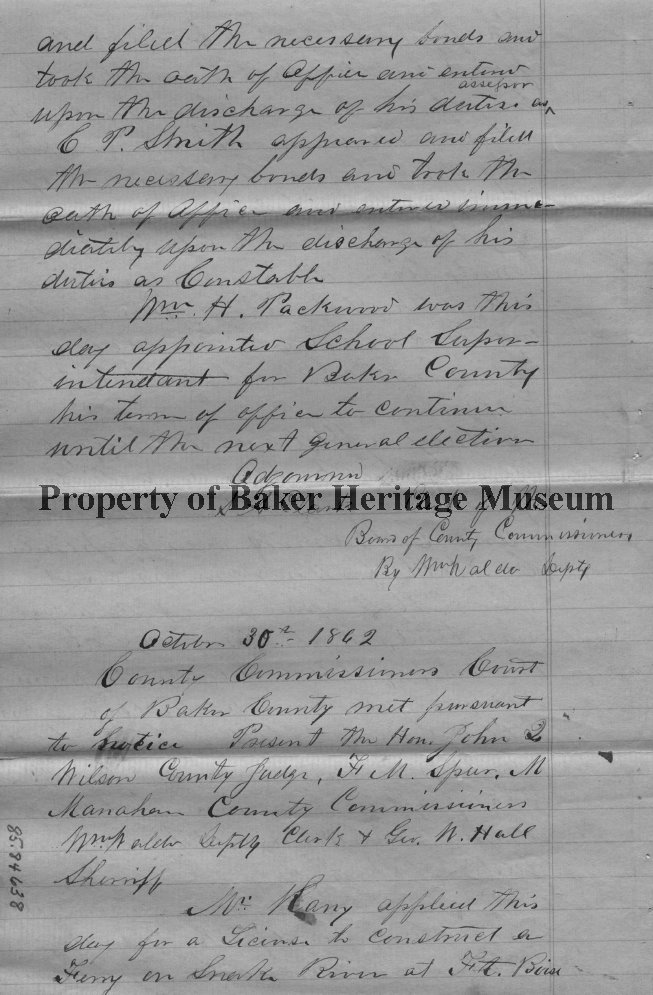 and filed the necessary bonds and
took the oath of Office and entered
assessor
upon the discharge of his duties as ^
C P. Smith appeared and filed
the necessary bonds and took the
oath of Office and entered imme-
diately upon the discharge of his
duties as Constable
Wm. H. Packwood was this
day appointed School Super-
intendant for Baker County
his term of office to continue
until the next general election
Adjourned
Property of Baker Heritage Museum
Board of County Commissioners
By Wm Waldo Depty
October 30th 1862
County Commissioners Court
of Baker County met pursuant
to notice Present the Hon. John Q
Wilson County Judge, F. M. Spear, M
Manahan County Commissioners
Wm Waldo Depty Clerk & Geo. W. Hall
Sherriff
Mr. applied this
day for a License to construct a
Ferry on Snake River at Ft. Boise
85.94.638